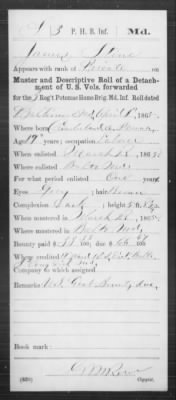 S 3 P. H. B. Inf. Md.
James Stone
Appears with rank of Private
Muster and Descriptive Roll of a Detachment of U. S. Vols. forwarded
for the 3 Reg't Potomac Home Brig. Md. Inf. Roll dated
Baltimore Md, April 1, 1865.
Where born
Age 19 y'rs; occupation
When enlisted March 28, 1865.
Where enlisted
For what period enlisted One years.
Eyes Grey; hair Brown
Complexion Dark; height 5 ft. 8 in.
When mustered in March 28, 1865.
Where mustered in Balto Md.
Bounty paid $ 33 00/100; due $ 66 67/100
Where credited
Company to which assigned
Remarks: U.S. Govt Bounty due,
Book mark:
(339) Copyist.